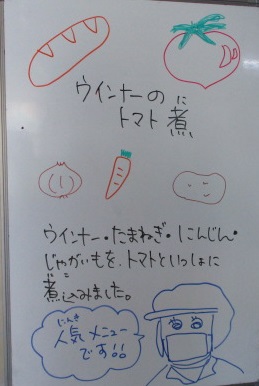 ウインナーの
トマト煮
に
ウインナー・たまねぎ・にんじん・
じゃがいもを、トマトといっしょに
煮込みました。
にこ
人気メニュー
にんき
です!!